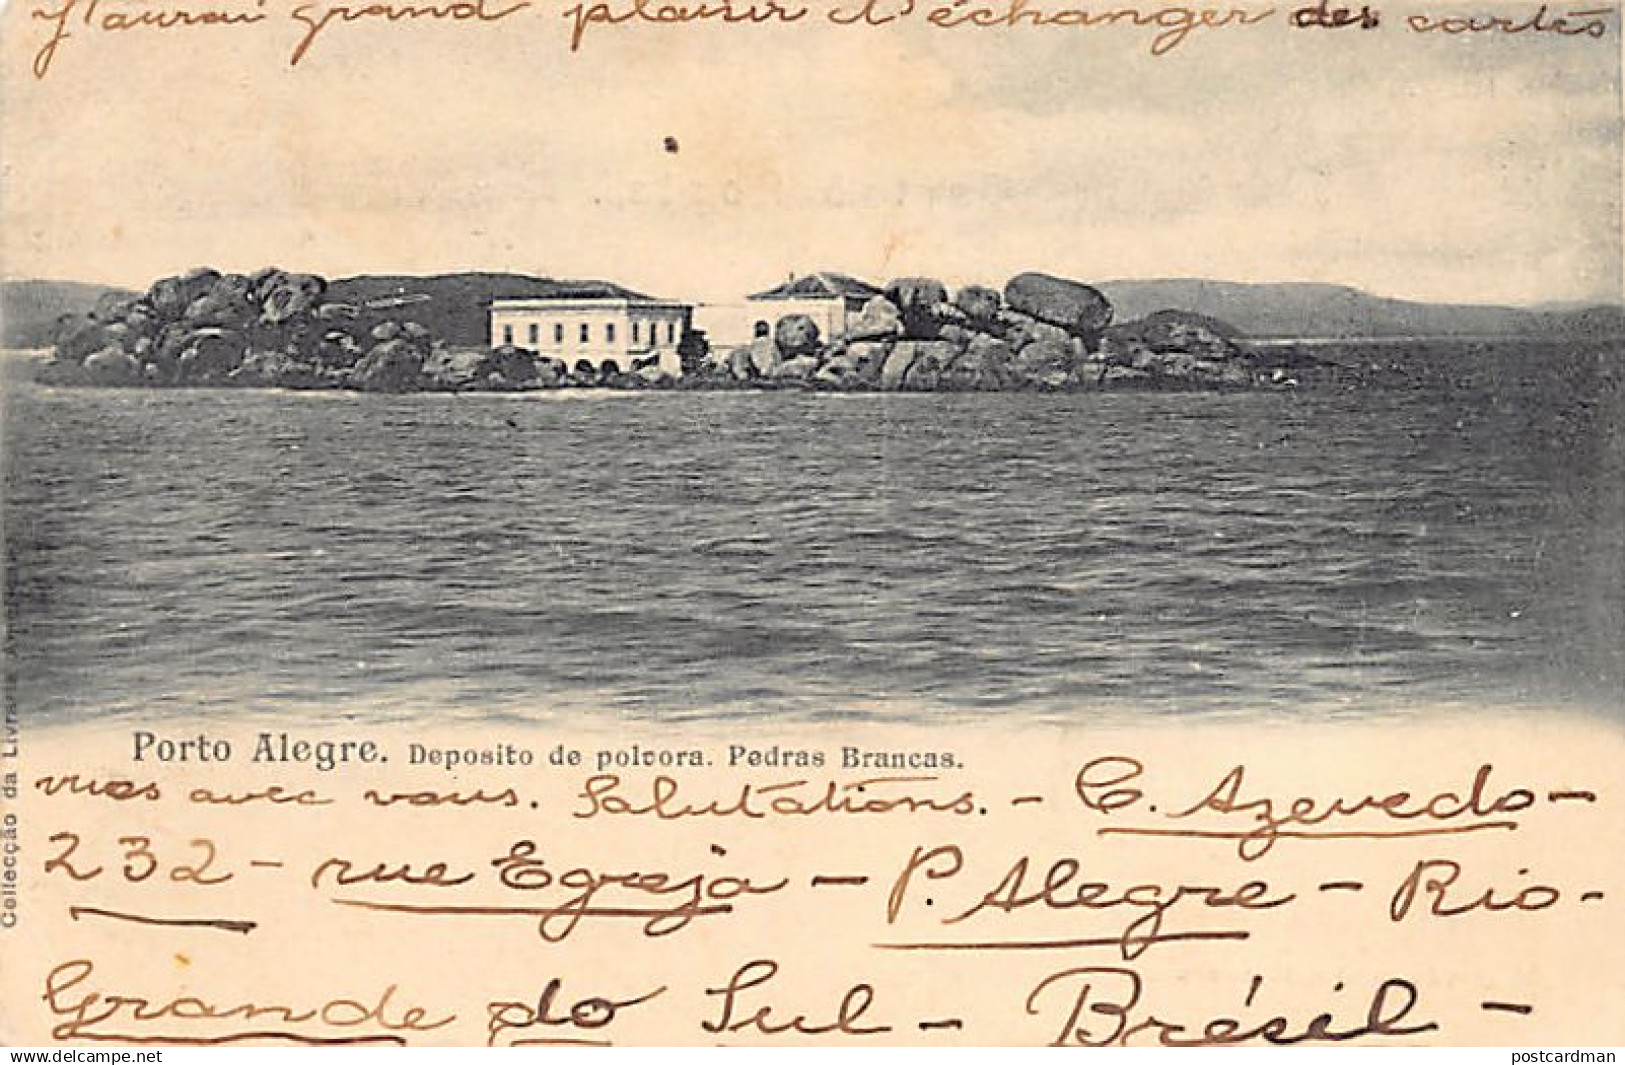 J'aurai grand plaisir d'échanger des cartes
Porto Alegre. Deposito de polvora. Pedras Brancas.
vues avec vous. Salutations. - C. Azevedo -
232 - rue Egreja - P. Alegre - Rio -
Grande do Sul - Brésil -
Collecção da Livraria
delcampe.net
postcardman